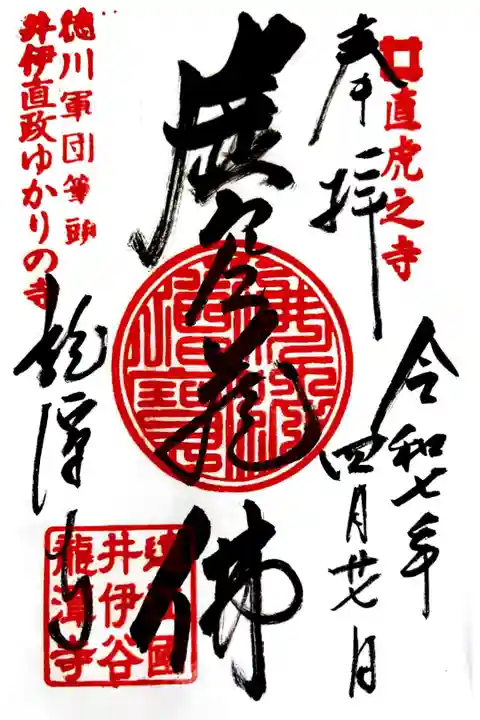 直虎之寺
奉拝
令和七年
四月廿七日
虚空蔵佛
徳川軍団筆頭
井伊直政ゆかりの寺
龍潭寺
遠江國
井伊谷
龍潭寺